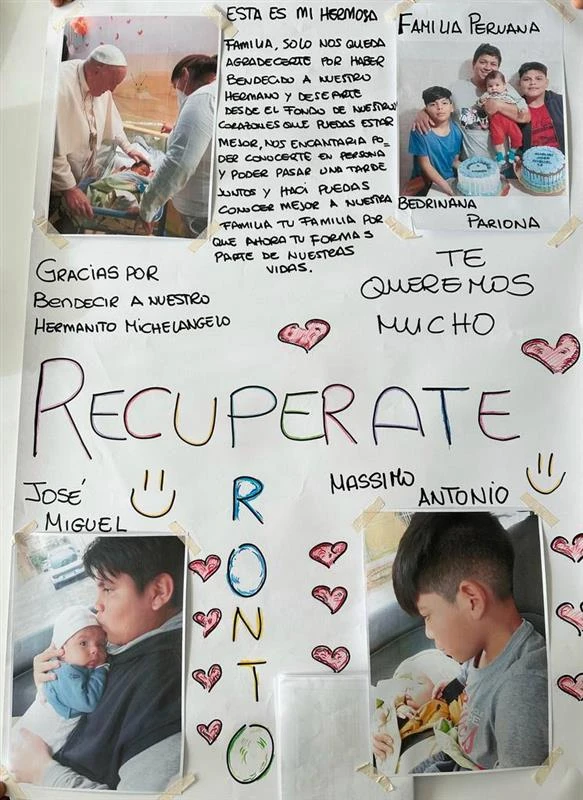 ESTA ES MI HERMOSA
FAMILIA, SOLO NOS QUEDA
AGRADECERTE POR HABER
BENDECIDO A NUESTRO
HERMANO Y DESEARTE
DESDE EL FONDO DE NUESTROS
CORAZONES QUE PUEDAS ESTAR
MEJOR, NOS ENCANTARIA PO-
DER CONOCERTE EN PERSONA
Y PODER PASAR UNA TARDE
JUNTOS Y HACI PUEDAS
CONOCER MEJOR A NUESTRA
FAMILIA TU FAMILIA POR
QUE AHORA TU FORMAS
PARTE DE NUESTRAS
VIDAS.
FAMILIA PERUANA
BEDRINANA
PARIONA
GRACIAS POR
BENDECIR A NUESTRO
HERMANITO MICHELANGELO
TE
QUEREMOS
MUCHO
RECUPERATE
PRONTO
JOSÉ
MIGUEL
MASSIMO
ANTONIO